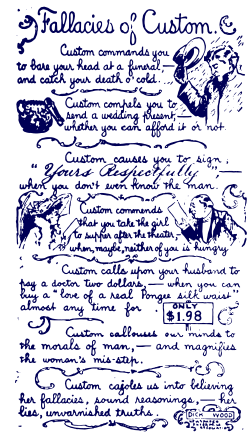 Fallacies of Custom.
Custom commands you
to bare your head at a funeral—
and catch your death o' cold.
Custom compels you to
send a wedding present,—
whether you can afford it or not.
Custom causes you to sign;
"Yours Respectfully"—
when you don't even know the man.
Custom commends
that you take the girl
to supper after the theater,—
when, maybe, neither of you is hungry.
Custom calls upon your husband to
pay a doctor two dollars,— when you can
buy a "love of a real Pongee silk waist"
almost any time for ONLY
$1.98
Custom callouses our minds to
the morals of man,— and magnifies
the woman's mis-step.
Custom cajoles us into believing
her fallacies, sound reasonings,— her
lies, unvarnished truths.
DICK WOOD